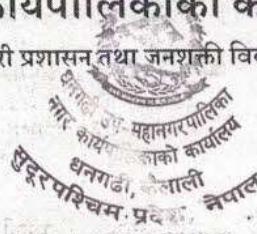 कार्यपालिकाको क
री प्रशासन तथा जनशक्ती वि
धनगढी उप-महानगरपालिका
नगर कार्यपालिकाको कार्यालय
धनगढी, कैलाली
सुदूरपश्चिम प्रदेश, नेपाल